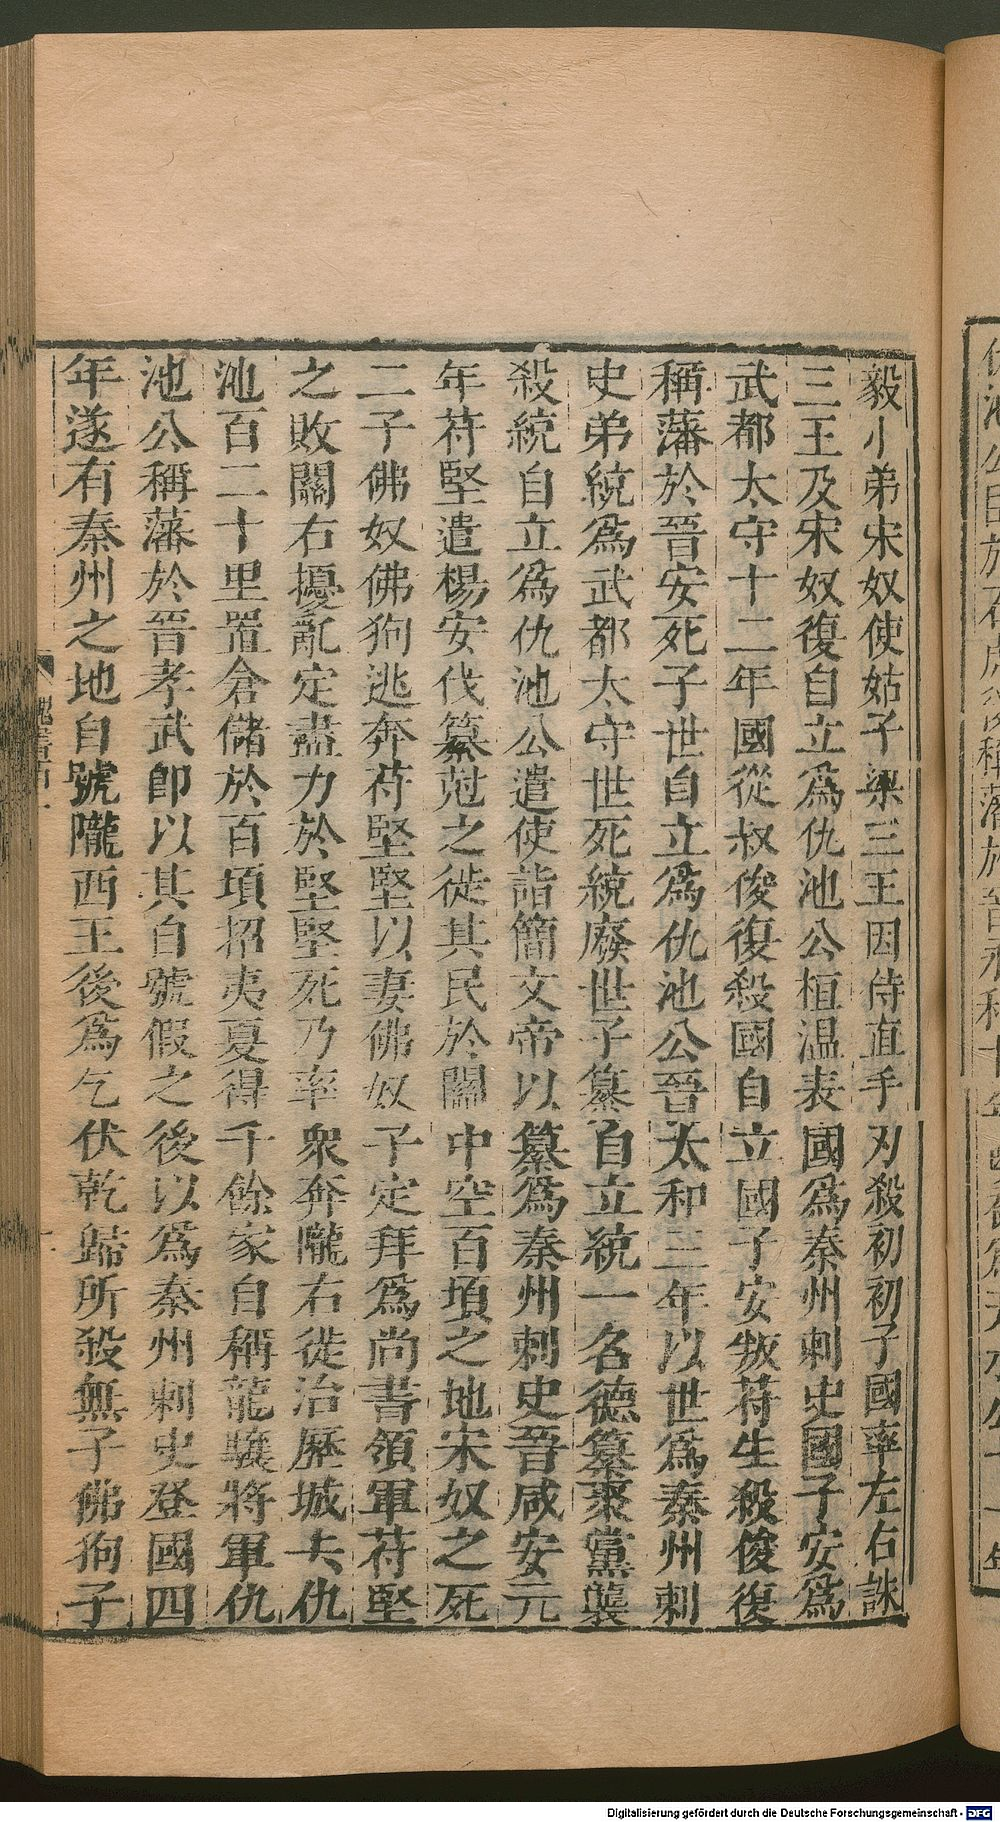 毅小弟宋奴使姑子梁三王因侍直手刃殺初初子國率左右誅
三王及宋奴復自立爲仇池公桓温表國爲秦州刺史國子安爲
武都太守十二年國從叔俊復殺國自立國子安叛苻生殺俊復
稱藩於晉安死子世自立爲仇池公晉太和三年以世爲秦州刺
史弟統爲武都太守世死統廢世子纂自立統一名德纂聚黨襲
殺統自立爲仇池公遣使詣簡文帝以纂爲秦州刺史晉咸安元
年苻堅遣楊安伐纂尅之徙其民於關中空百頃之地宋奴之死
二子佛奴佛狗逃奔苻堅堅以妻佛奴子定拜爲尚書領軍苻堅
之敗關右擾亂定盡力於堅堅死乃率衆奔隴右徙治歷城去仇
池百二十里置倉儲於百頃招夷夏得千餘家自稱龍驤將軍仇
池公稱藩於晉孝武即以其自號假之後以爲秦州刺史登國四
年遂有秦州之地自號隴西王後爲乞伏乾歸所殺無子佛狗子
Digitalisierung gefördert durch die Deutsche Forschungsgemeinschaft - DFG